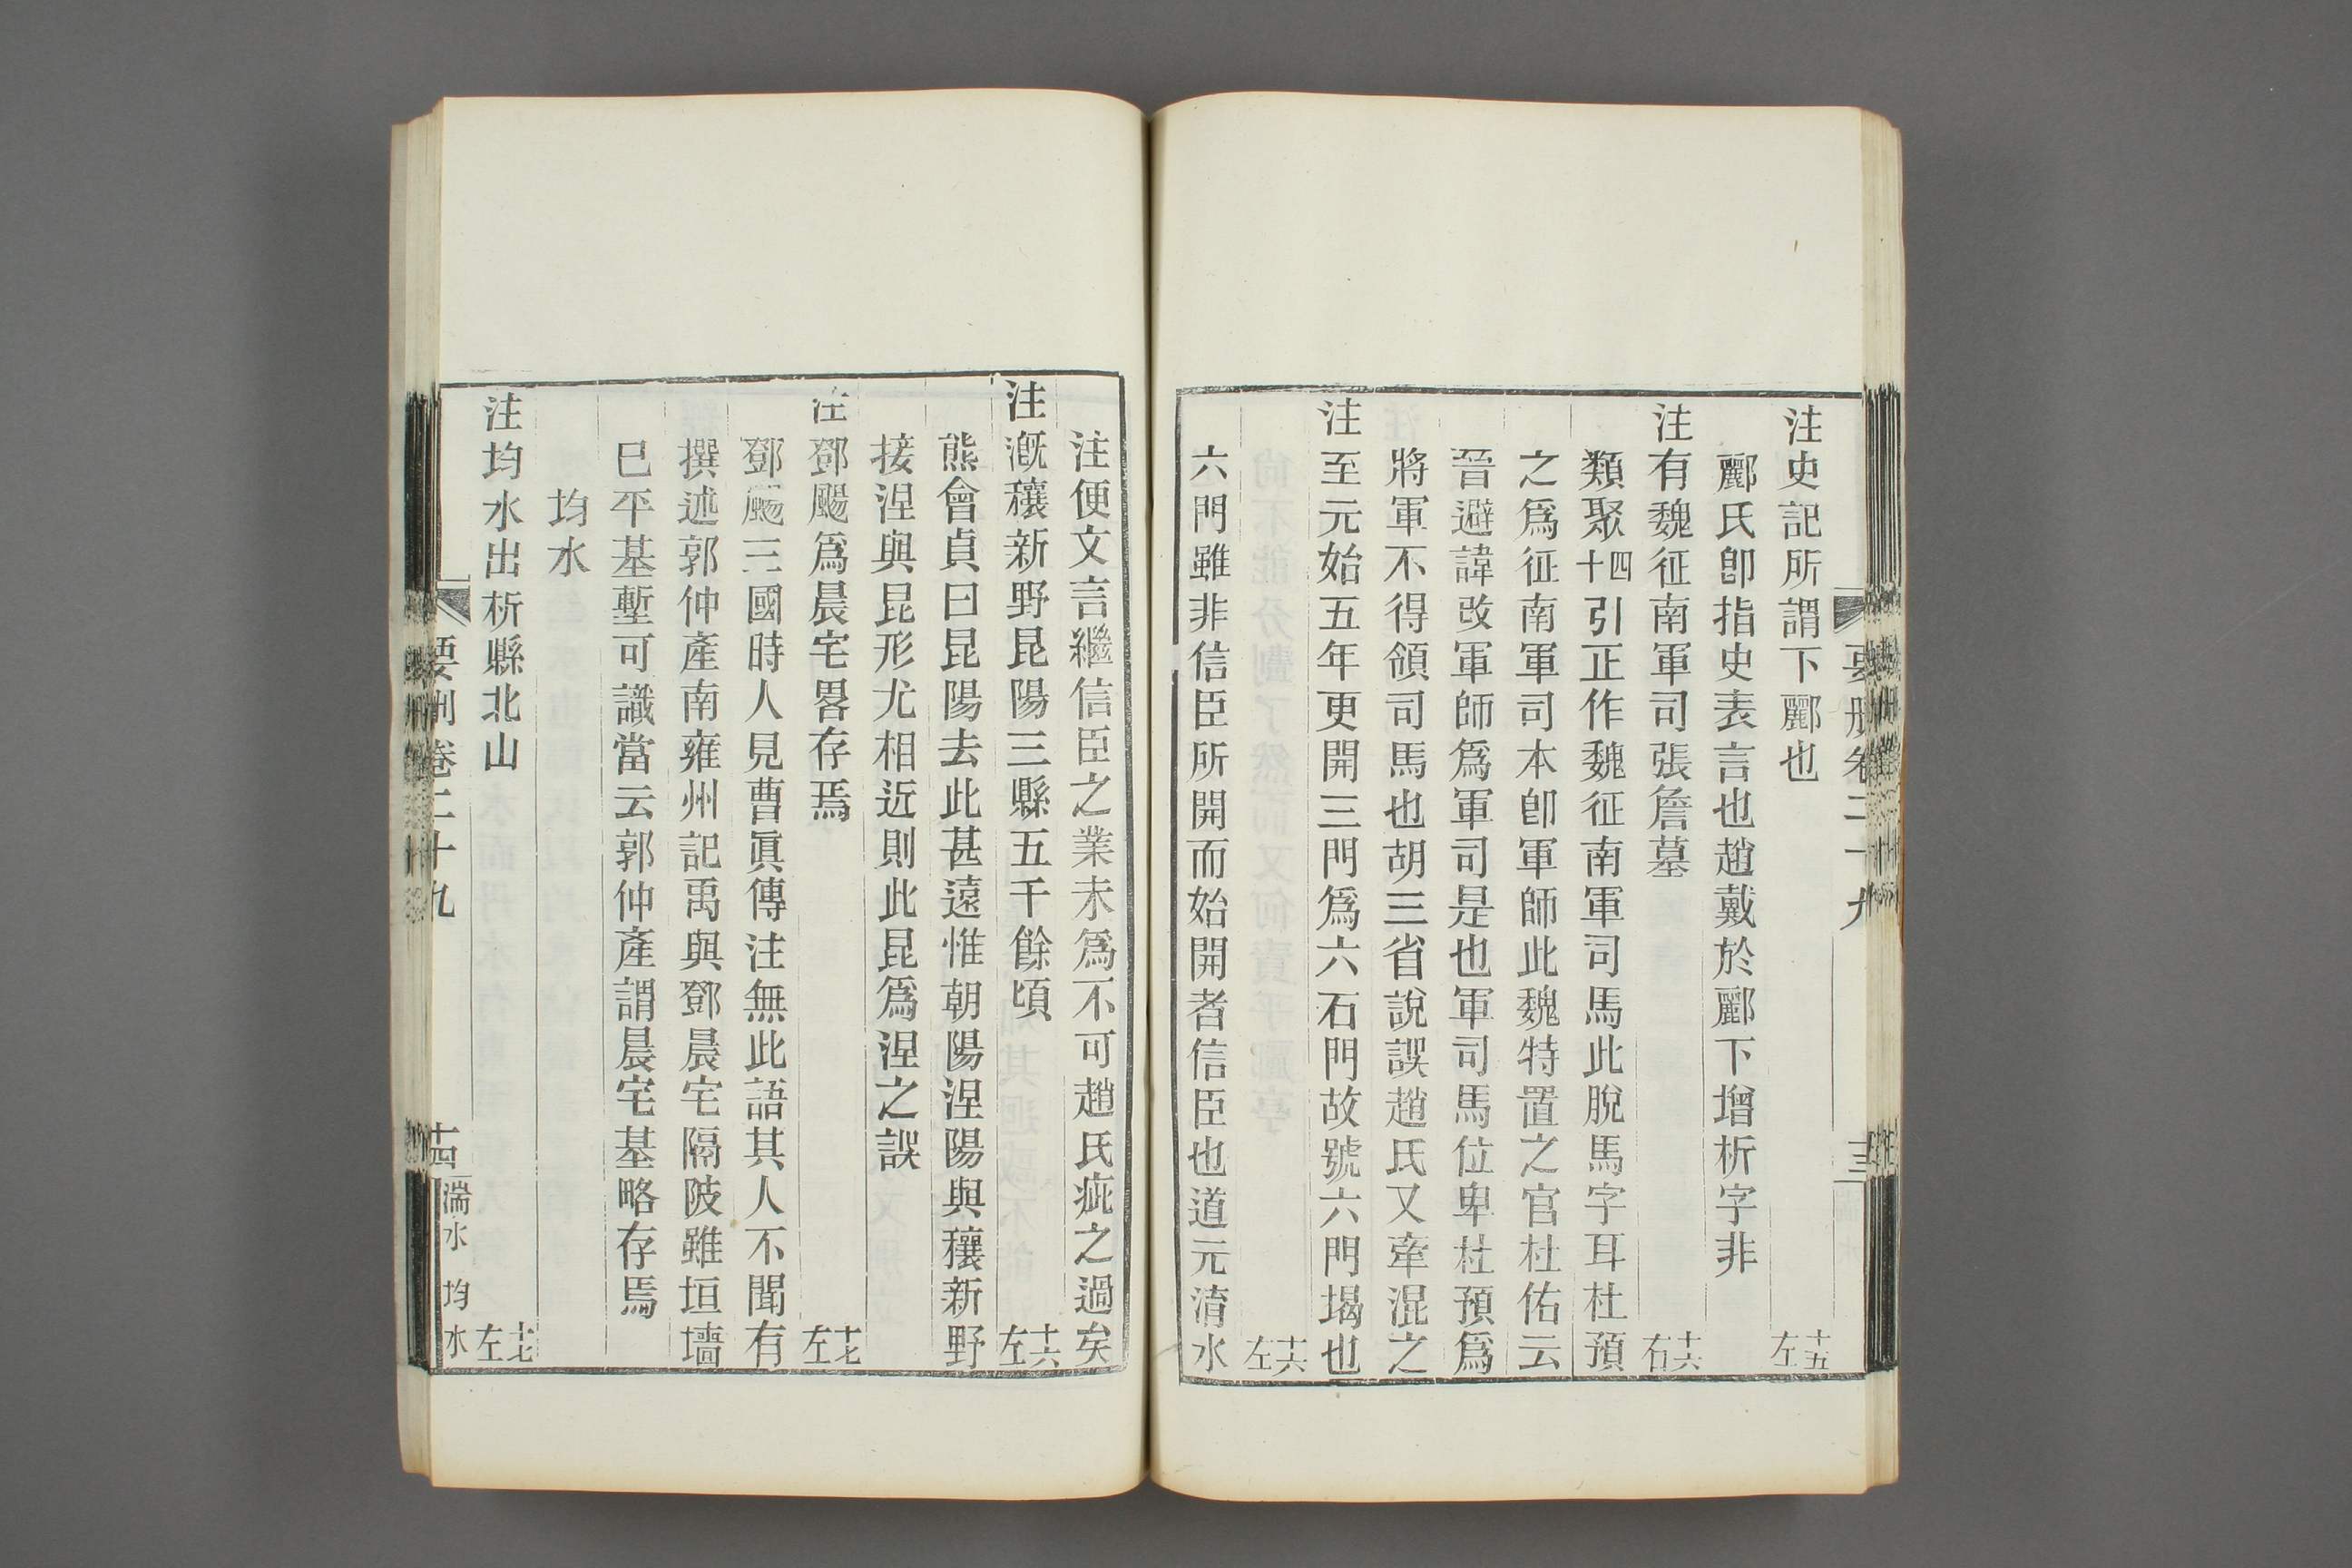 要刪卷二十九　十三
注史記所謂下酈也　十五左
酈氏卽指史表言也趙戴於酈下增析字非
注有魏征南軍司張詹墓　十六右
類聚四十引正作魏征南軍司馬此脫馬字耳杜預
之爲征南軍司本卽軍師此魏特置之官杜佑云
晉避諱改軍師爲軍司是也軍司馬位卑杜預爲
將軍不得領司馬也胡三省說誤趙氏又牽混之
注至元始五年更開三門爲六石門故號六門堨也
十六左
六門雖非信臣所開而始開者信臣也道元淯水
注便文言繼信臣之業未爲不可趙氏疵之過矣
注溉穰新野昆陽三縣五千餘頃　十六左
熊會貞曰昆陽去此甚遠惟朝陽涅陽與穰新野
接涅與昆形尤相近則此昆爲涅之誤
注鄧颺爲晨宅畧存焉　十七左
鄧颺三國時人見曹眞傳注無此語其人不聞有
撰述郭仲產南雍州記禹與鄧晨宅隔陂雖垣墻
已平基塹可識當云郭仲產謂晨宅基略存焉
均水
注均水出析縣北山　十七左
要刪卷二十九　十四　湍水　均水